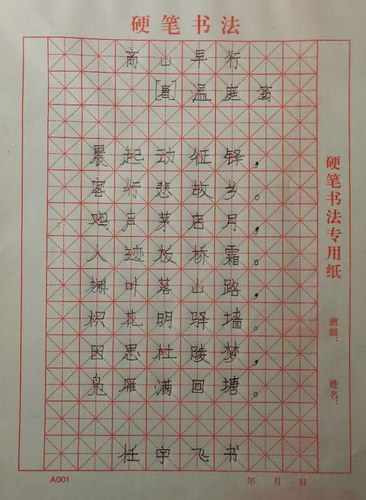 硬笔书法
商山早行
[唐]温庭筠
晨起动征铎，
客行悲故乡。
鸡声茅店月，
人迹板桥霜。
槲叶落山路，
枳花明驿墙。
因思杜陵梦，
凫雁满回塘。
任宇飞书
硬笔书法专用纸
班级：
姓名：
A001
年 月 日